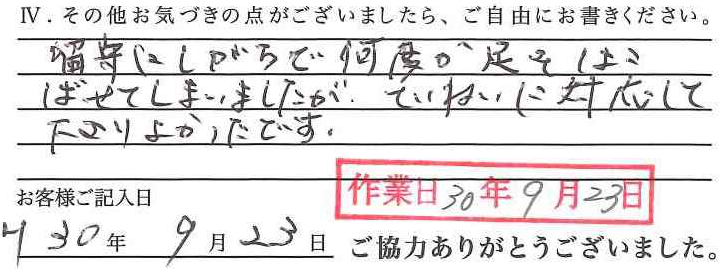 Ⅳ．その他お気づきの点がございましたら、ご自由にお書きください。
留守にしがちで何度か足をはこ
ばせてしまいましたが、ていねいに対応して
下さりよかったです。
作業日30年9月23日
お客様ご記入日
H30年9月23日 ご協力ありがとうございました。